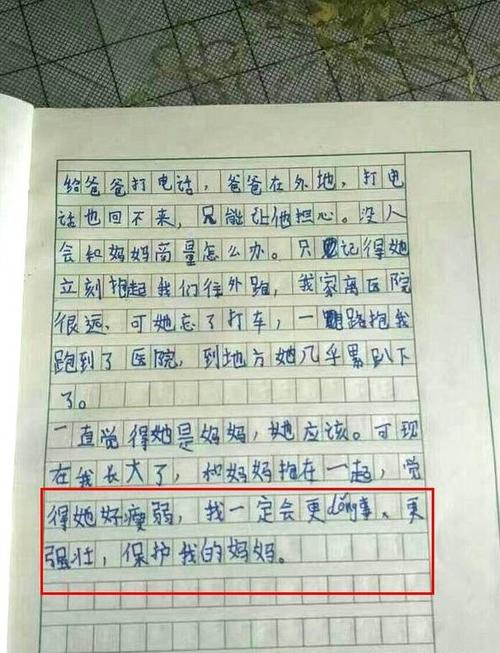 给爸爸打电话，爸爸在外地，打电
话也回不来，只能让他担心。没人
会和妈妈商量怎么办。只记得她
立刻抱起我们往外跑，我家离医院
很远，可她忘了打车，一路抱我
跑到了医院，到地方她几乎累趴下
了。
一直觉得她是妈妈，她应该。可现
在我长大了，和妈妈抱在一起，觉
得她好瘦弱，我一定会更dǒng事、更
强壮，保护我的妈妈。